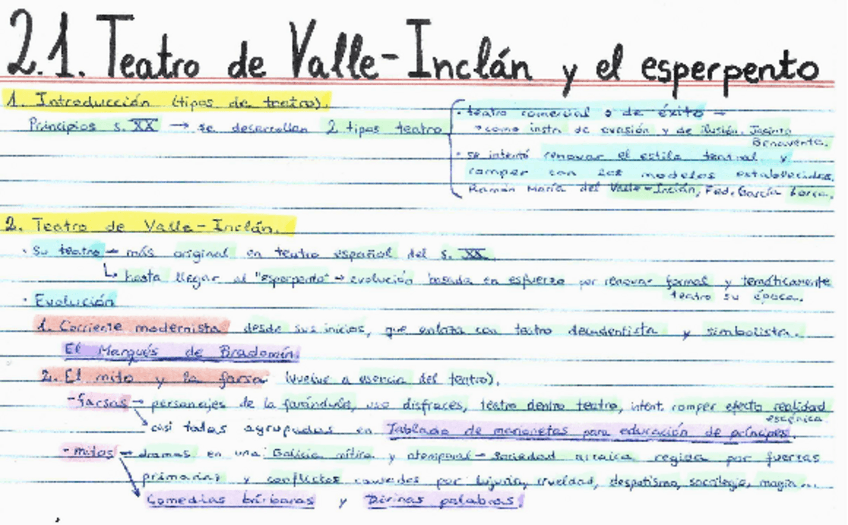 2.1. Teatro de Valle-Inclán y el esperpento
1. Introducción (tipos de teatro).
Principios s. XX → se desarrollan 2 tipos teatro
· teatro comercial o de éxito →
→ como instr. de evasión y de ilusión. Jacinto
Benavente.
· se intentó renovar el estilo teatral y
romper con los modelos establecidos.
Ramón María del Valle-Inclán, Fed. García Lorca.
2. Teatro de Valle-Inclán.
· Su teatro → más original en teatro español del s. XX
↳ hasta llegar al "esperpento" → evolución basada en esfuerzo por renovar formal y temáticamente
teatro su época.
· Evolución
1. Corriente modernista desde sus inicios, que enlaza con teatro decadentista y simbolista.
El Marqués de Bradomín.
2. El mito y la farsa (vuelve a esencia del teatro).
- farsas → personajes de la farándula, uso disfraces, teatro dentro teatro, intent. romper efecto realidad
escénica
casi todas agrupadas en Tablado de marionetas para educación de príncipes.
- mitos → dramas en una Galicia mítica y atemporal → sociedad arcaica regida por fuerzas
primarias y conflictos causados por lujuria, crueldad, despotismo, sacrilegio, magia...
Comedias bárbaras y Divinas palabras.